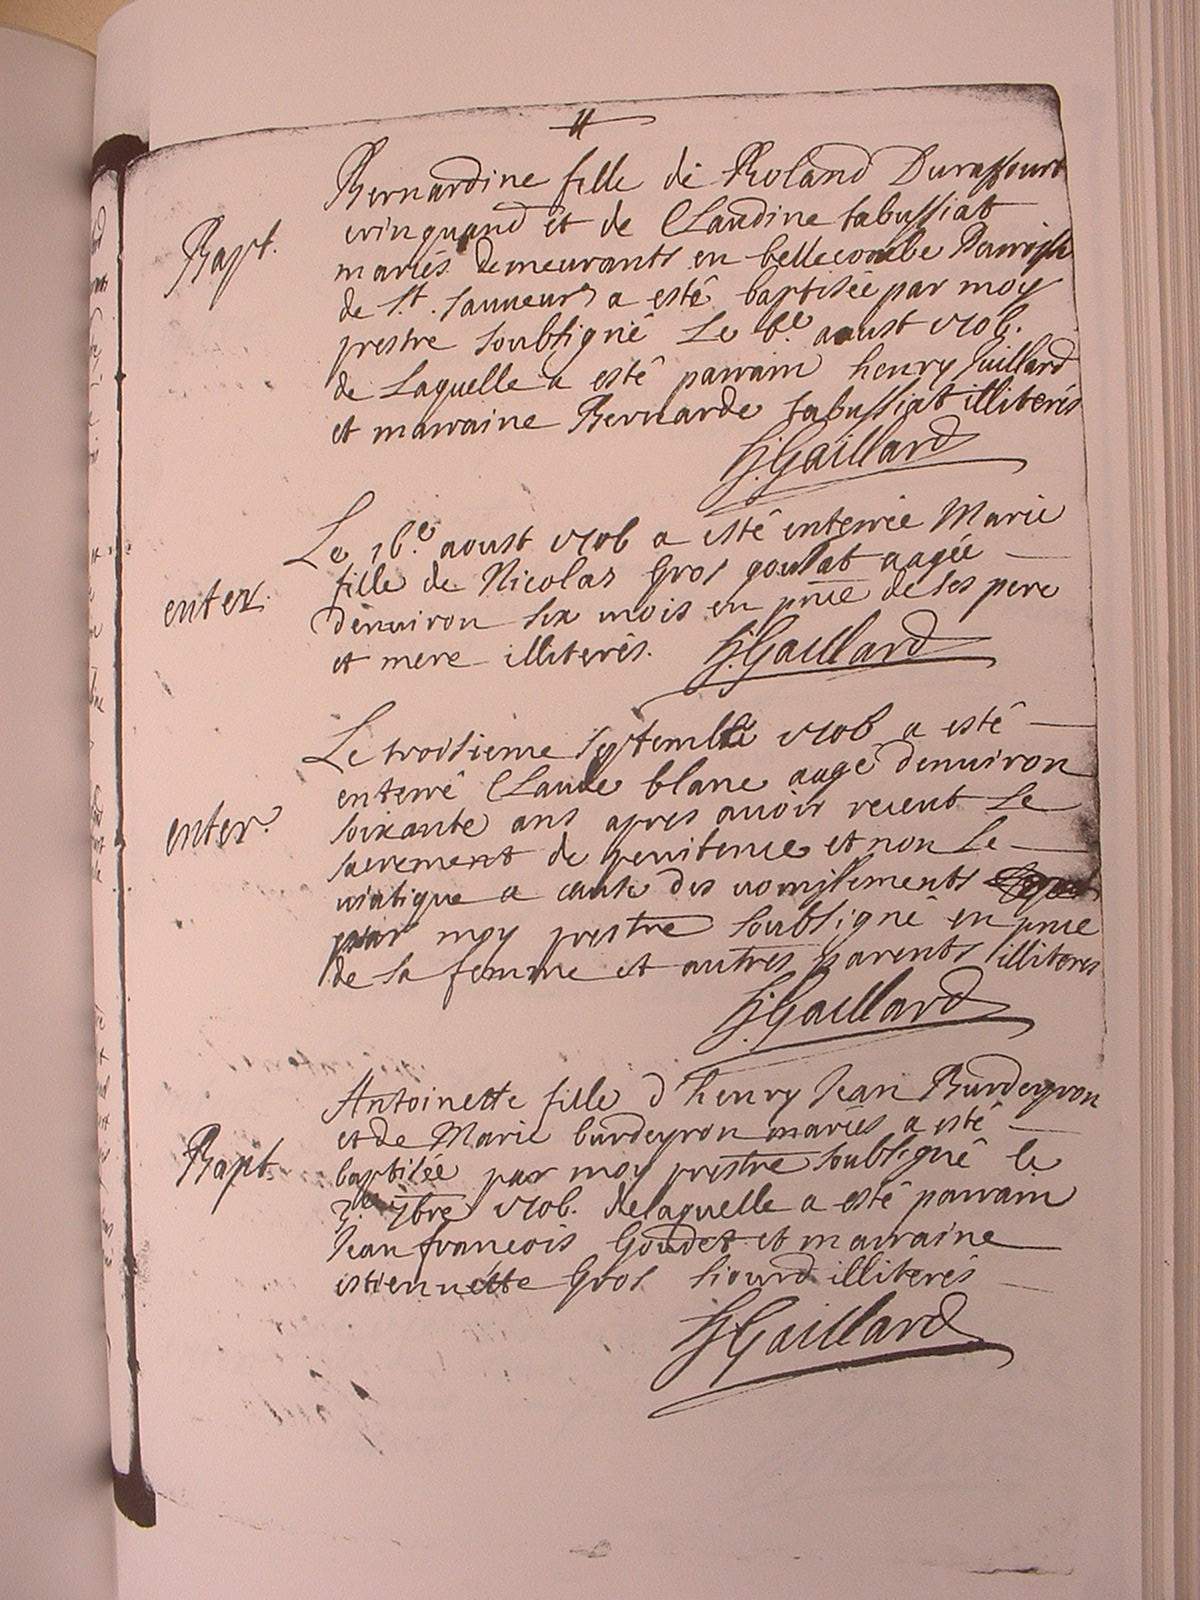 Bapt. Bernardine fille de Roland Duraffourt
vinquand et de Claudine tabussiat
mariés demeurants en bellecombe Parroisse
de St. Sauueur a estê baptisée par moy
prestre soubsignê Le 6e. aoust 1706.
de Laquelle a estê parrain henry Juillard
et marraine Bernarde tabussiat illiterés
J. Gaillard
enter. Le 16e. aoust 1706 a estê enterrée Marie
fille de Nicolas Gros goulat aagée
denuiron six mois en pnce de ses pere
et mere illiterés. J. Gaillard
enter. Le troisieme septembre 1706 a estê
enterrê Claude blanc aagê denuiron
soixante ans apres auoir receut Le
sacrement de penitence et non Le
viatique a cause des vomissements
par moy prestre soubsignê en pnce
de sa femme et autres parents illiteres
J. Gaillard
Bapt. Antoinette fille d'henry Jean Burdeyron
et de Marie burdeyron mariés a estê
baptisée par moy prestre soubsignê le
3e 7bre 1706. de laquelle a estê parrain
Jean francois Goudet et marraine
estiennette Gros siourd illiterés
J. Gaillard